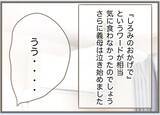 『しろみのおかげで』
というワードが相当
気に食わなかったのでしょう
さらに義母は泣き始めました
うう・・・・・